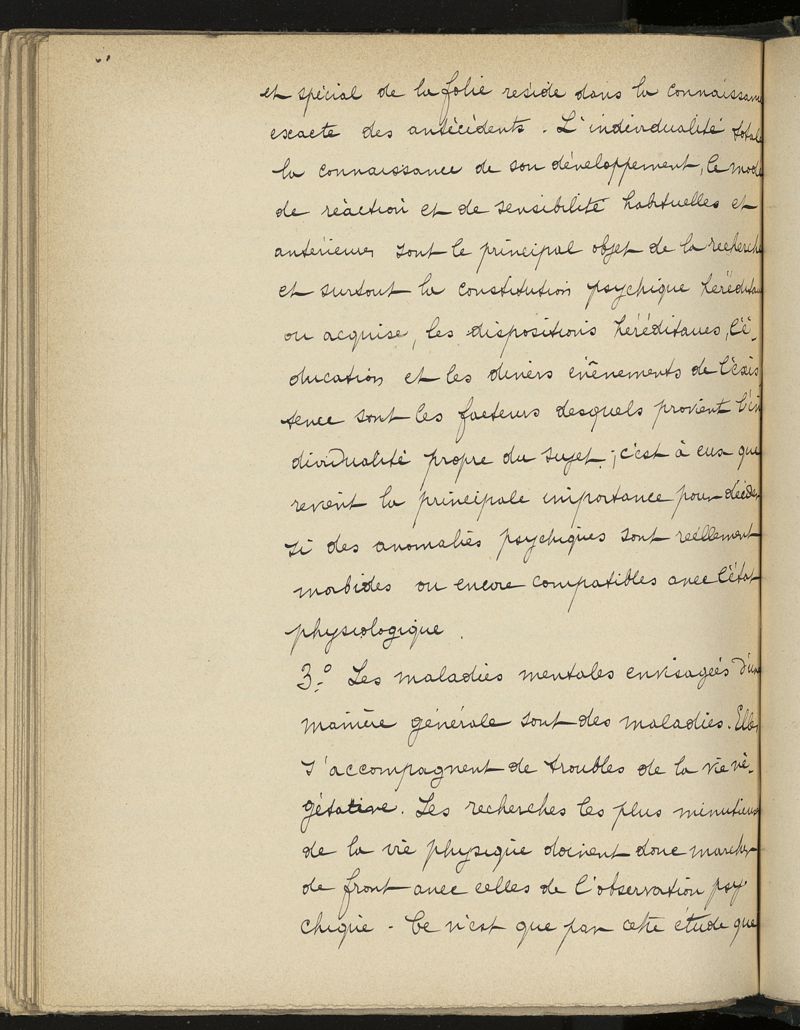 et spécial de la folie reside dans la connaissance
exacte des antécédents. L'individualité totale
la connaissance de son développement, le mode
de réaction et de sensibilité habituelles et
antérieures sont le principal objet de la recherche
et surtout la constitution psychique héréditaire
ou acquise, les dispositions héréditaires, l'é-
ducation et les divers évènements de l'exis
tence sont les facteurs desquels provient l'in
dividualité propre du sujet; c'est à eux que
revient la principale importance pour décider
si des anomalies psychiques sont réellement
morbides ou encore compatibles avec l'état
physiologique.
3.º Les maladies mentales envisagées d'une
manière générale sont des maladies. Elles
s'accompagnent de troubles de la vie vé-
gétative. Les recherches les plus minutieuses
de la vie physique doivent donc marcher
de front avec celles de l'observation psy
chique. Ce n'est que par cette étude que